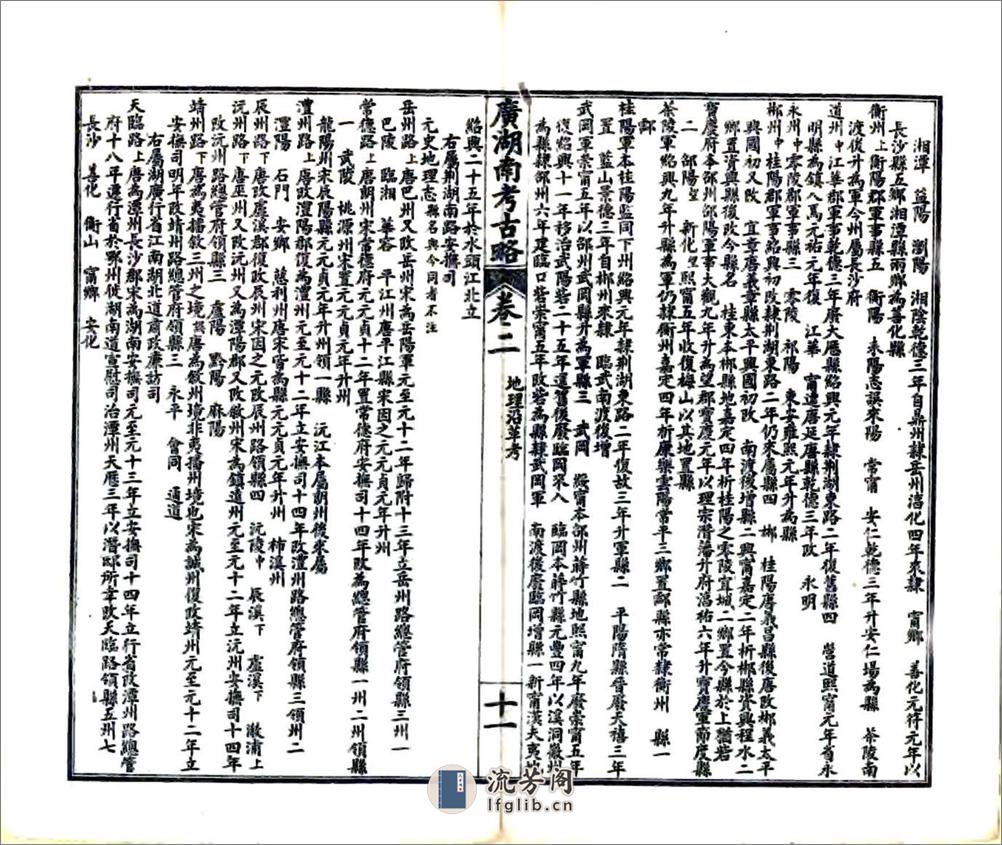 湘潭　益陽　瀏陽　湘陰乾德三年自鼎州隸岳州淳化四年來隸　甯鄉　善化元符元年以
長沙縣五鄉湘潭縣兩鄉為善化縣
衡州上衡陽郡軍事縣五　衡陽　耒陽志誤來陽　常甯　安仁乾德三年升安仁場為縣　茶陵南
渡後升為軍今州屬長沙府
道州中江華郡軍事乾德三年廢大歷縣紹興元年隸荊湖東路二年復舊縣四　營道熙甯元年省永
明縣為鎮入焉元祐元年復　江華　甯遠唐延唐縣乾德三年改　永明
永州中零陵郡軍事縣三　零陵　祁陽　東安雍熙元年升為縣
郴州中桂陽郡軍事紹興初改隸荊湖東路二年仍來屬縣四　郴　桂陽唐義昌縣後唐改郴義太平
興國初又改　宜章唐義章縣太平興國初改　南渡後增縣二興甯嘉定二年析郴縣資興程水二
鄉置資興縣後改今縣名　桂東本郴縣地嘉定四年析桂陽之零陵宜城二鄉置今縣於上猶砦
寶慶府本邵州邵陽軍事大觀九年升為望郡寶慶元年以理宗潛藩升府淳祐六年升寶慶軍節度縣
二　邵陽望　新化望熙甯五年收復梅山以其地置縣
茶陵軍紹興九年升縣為軍仍隸衡州嘉定四年析康樂雲陽常平三鄉置酃縣亦常隸衡州　縣一
酃
桂陽軍本桂陽監同下州紹興元年隸荊湖東路二年復故三年升軍縣二　平陽隋縣晉廢天禧三年
置　藍山景德三年自郴州來隸　臨武南渡復增
武岡軍崇甯五年以邵州武岡縣升為軍縣三　武岡　綏甯本邵州蒔竹縣地熙甯九年廢崇甯五年
復紹興十一年移治武陽砦二十五年還舊後廢臨岡來入　臨岡本蒔竹縣元豐四年以溪洞徽州
為縣隸邵州六年建臨口砦崇甯五年改砦為縣隸武岡軍　南渡後廢臨岡增縣一新甯漢夫夷
廣湖南考古略
卷二
地理沿革考
十一
紹興二十五年於水頭江北立
右屬荊湖南路安撫司
元史地理志縣名與今同者不注
岳州路上唐巴州又改岳州宋為岳陽軍元至元十二年歸附十三年立岳州路總管府領縣三州一
巴陵　臨湘　華容　平江州唐平江縣宋因之元元貞元年升州
常德路上唐朗州宋常德府元至元十二年置常德府安撫司十四年改為總管府領縣一州二州領縣
一　武陵　桃源州宋置元元貞元年升州
龍陽州宋辰陽縣元元貞元年升州領一縣　沅江本屬朗州後來屬
澧州路上唐改澧陽郡復改澧州元至元十二年立安撫司十四年改澧州路總管府領縣三領州二
澧陽　石門　安鄉　慈利州唐宋皆為縣元元貞元年升州　柿溪州
辰州路下唐改盧溪郡復改辰州宋因之元改辰州路領縣四　沅陵中　辰溪下　盧溪下　溆浦上
沅州路下唐巫州又改沅州又為潭陽郡又改敘州宋為鎮遠州元至元十二年立沅州安撫司十四年
改沅州路總管府領縣三　盧陽　黔陽　麻陽
靖州路下唐為夷播敘三州之境誤唐為敘州境非夷播州境也宋為誠州復改靖州元至元十二年立
安撫司明年改靖州路總管府領縣三　永平　會同　通道
右屬湖廣行省江南湖北道肅政廉訪司
天臨路上唐為潭州長沙郡宋為湖南安撫司元至元十三年立安撫司十四年立行省改潭州路總管
府十八年遷行省於鄂州徙湖南道宣慰司治潭州天歷二年以潛邸所幸改天臨路領縣五州七
長沙　善化　衡山　甯鄉　安化
流芳阁
lfglib.cn